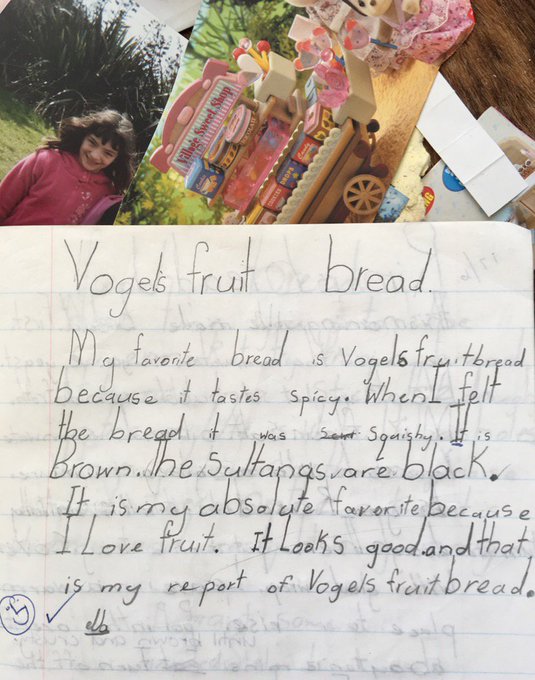 Village Sweet Shop
Vogel's fruit bread.
My favorite bread is Vogels fruitbread
because it tastes spicy. When I felt
the bread it was squishy. It is
brown. The Sultanas are black.
It is my absolute favorite because
I Love fruit. It Looks good. and that
is my report of Vogels fruitbread.
ella